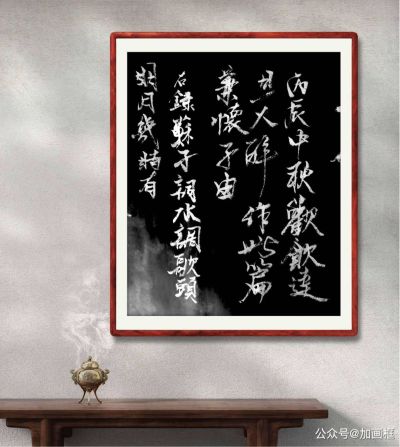 丙辰中秋歡飲達
旦大醉作此篇
兼懷子由
右錄蘇子詞水調歌頭
明月幾時有
公众号@加画框